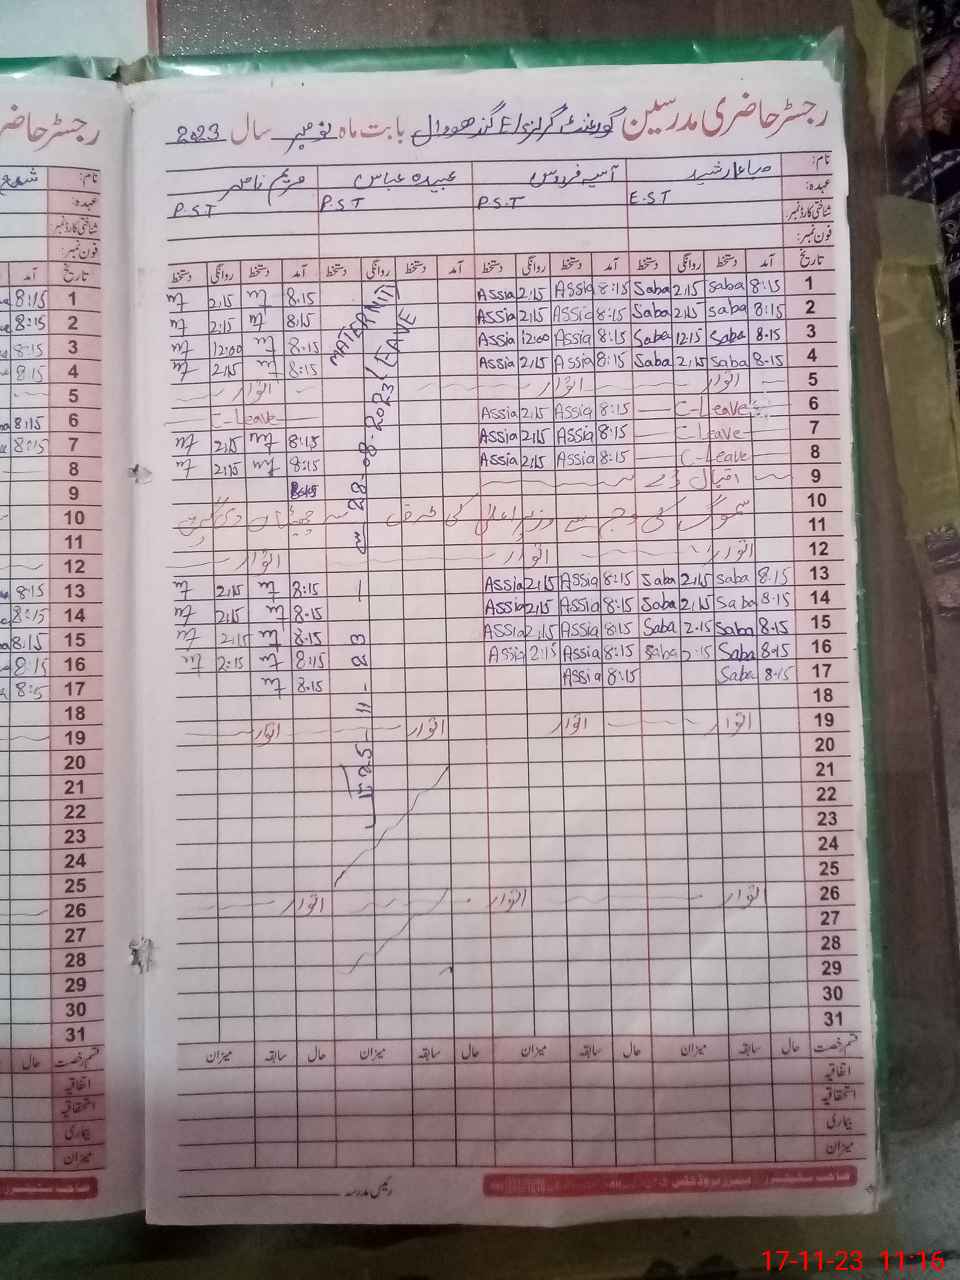 رجسٹر حاضری مدرسین گورنمنٹ گرلز E/S گندھووال بابت ماہ نومبر سال 2023
نام: صباء ارشد آسیہ فردوس عبیدہ عباس مریم ناصر
عہدہ: E.ST P.S.T P.S.T P.S.T
شناختی کارڈ نمبر:
فون نمبر:
تاریخ آمد دستخط روانگی دستخط آمد دستخط روانگی دستخط آمد دستخط روانگی دستخط آمد دستخط روانگی دستخط
1 8:15 Saba 2:15 Saba 8:15 Assia 2:15 Assia 8.15 2:15
2 8:15 Saba 2:15 Saba 8:15 Assia 2:15 Assia 8:15 2:15
3 8.15 Saba 12:15 Saba 8:15 Assia 12:00 Assia 8:15 12:00
4 8.15 Saba 2:15 Saba 8:15 Assia 2:15 Assia 8:15 2:15
5 اتوار اتوار اتوار
6 C-Leave 8:15 Assia 2:15 Assia C-Leave
7 C-Leave 8:15 Assia 2:15 Assia 8:15 2:15
8 C-Leave 8:15 Assia 2:15 Assia 8:15 2:15
9 اقبال ڈے 8:15
10
سموگ کی وجہ سے وزیر اعلیٰ کی طرف سے چھٹیاں دی گئیں
11
12 اتوار اتوار اتوار
13 8.15 Saba 2:15 Saba 8:15 Assia 2:15 Assia 8:15 2:15
14 8.15 Saba 2:15 Saba 8:15 Assia 2:15 Assia 8.15 2:15
15 8.15 Saba 2.15 Saba 8:15 Assia 2:15 Assia 8.15 2:15
16 8.15 Saba 2:15 Saba 8:15 Assia 2:15 Assia 8:15 2:15
17 8.15 Saba 8:15 Assia 8.15
18
19 اتوار اتوار اتوار اتوار
20
21
22
23
24
25
26 اتوار اتوار اتوار
27
28
29
30
31
MATERNITY LEAVE
28-08-2023 سے
25-11-23 تک
قسم رخصت حال سابقہ میزان حال سابقہ میزان حال سابقہ میزان حال سابقہ میزان
اتفاقیہ
استحقاقیہ
بیماری
میزان
رئیس مدرسہ
رجسٹر حاضر
نام:
عہدہ:
شناختی کارڈ نمبر:
فون نمبر:
تاریخ آمد
1 8:15
2 8:15
3 8:15
4 8:15
5
6 8:15
7 8:15
8
9
10
11
12
13 8:15
14 8:15
15 8:15
16 8:15
17 8:15
18
19
20
21
22
23
24
25
26
27
28
29
30
31
قسم رخصت حال
اتفاقیہ
استحقاقیہ
بیماری
میزان
17-11-23 11:16